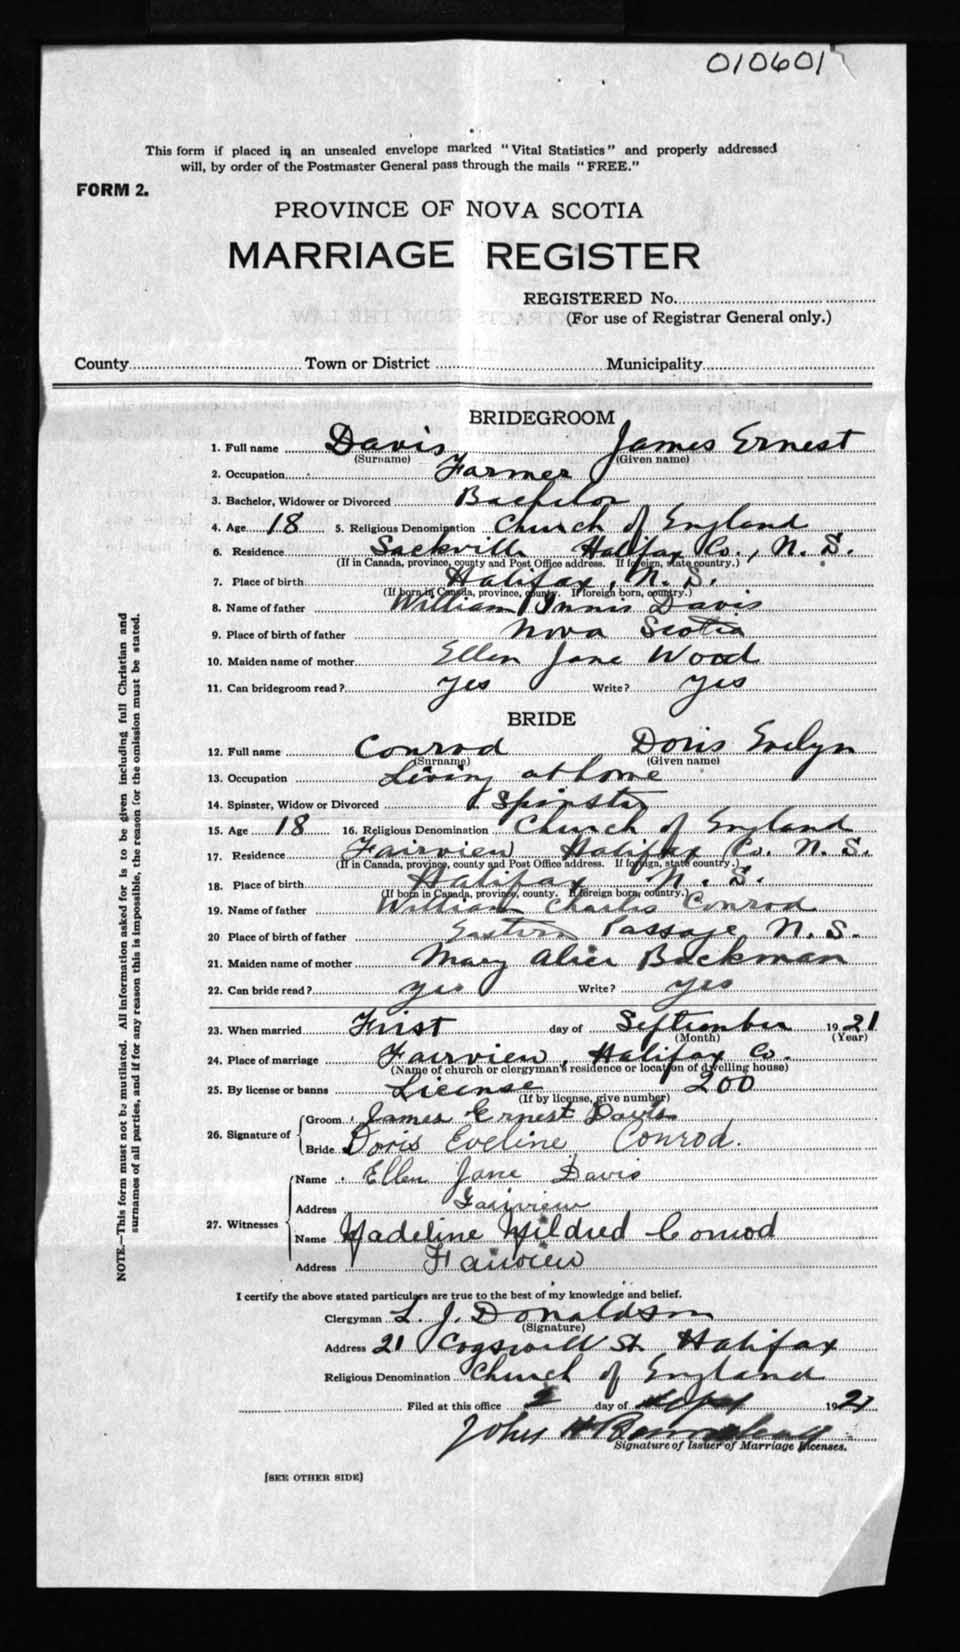 010601
This form if placed in an unsealed envelope marked "Vital Statistics" and properly addressed
will, by order of the Postmaster General pass through the mails "FREE."
FORM 2.
PROVINCE OF NOVA SCOTIA
MARRIAGE REGISTER
REGISTERED No.
(For use of Registrar General only.)
County Town or District Municipality
BRIDEGROOM
1. Full name Davis James Ernest
(Surname) (Given name)
2. Occupation Farmer
3. Bachelor, Widower or Divorced Bachelor
4. Age 18 5. Religious Denomination Church of England
6. Residence Sackville Halifax Co., N. S.
(If in Canada, province, county and Post Office address. If foreign, state country.)
7. Place of birth Halifax, N. S.
(If born in Canada, province, county. If foreign born, country.)
8. Name of father William Davis
9. Place of birth of father Nova Scotia
10. Maiden name of mother Ellen Jane Wood
11. Can bridegroom read? yes Write? yes
BRIDE
12. Full name Conrod Doris Evelyn
(Surname) (Given name)
13. Occupation Living at home
14. Spinster, Widow or Divorced Spinster
15. Age 18 16. Religious Denomination Church of England
17. Residence Fairview Halifax Co. N. S.
(If in Canada, province, county and Post Office address. If foreign, state country.)
18. Place of birth Halifax N. S.
(If born in Canada, province, county. If foreign born, country.)
19. Name of father William Charles Conrod
20 Place of birth of father Eastern Passage N. S.
21. Maiden name of mother Mary Alice Backman
22. Can bride read? yes Write? yes
23. When married First day of September 1921
(Month) (Year)
24. Place of marriage Fairview, Halifax Co.
(Name of church or clergyman's residence or location of dwelling house)
25. By license or banns License 200
(If by license, give number)
26. Signature of Groom James Ernest Davis
Bride Doris Eveline Conrod.
27. Witnesses Name Ellen Jane Davis
Address Fairview
Name Madeline Mildred Conrod
Address Fairview
I certify the above stated particulars are true to the best of my knowledge and belief.
Clergyman L. J. Donaldson
(Signature)
Address 21 Cogswell St. Halifax
Religious Denomination Church of England
Filed at this office 2 day of Sept 1921
John H
Signature of Issuer of Marriage Licenses.
[SEE OTHER SIDE]
NOTE.—This form must not be mutilated. All information asked for is to be given including full Christian and
surnames of all parties, and if for any reason this is impossible, the reason for the omission must be stated.